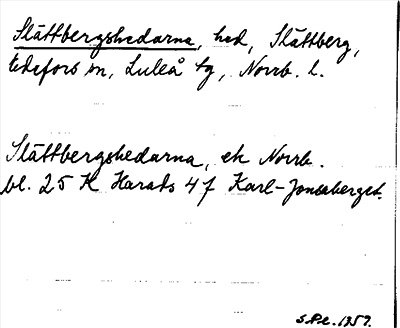 Slättbergshedarna, hed, Slättberg,
Edefors sn, Luleå tg, Norrb. l.
Slättbergshedarna, ek Norrb.
bl. 25 K Harads 4 f Karl-Jonsaberget.
S.P.e. 1959.